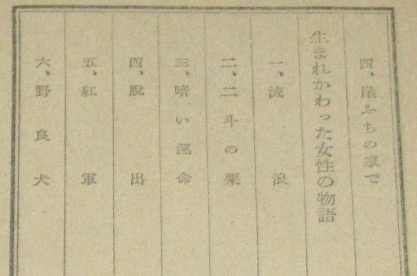 四、崖ふちの家で
生まれかわった女性の物語
一、流浪
二、二斗の粟
三、暗い運命
四、脱出
五、紅軍
六、野良犬